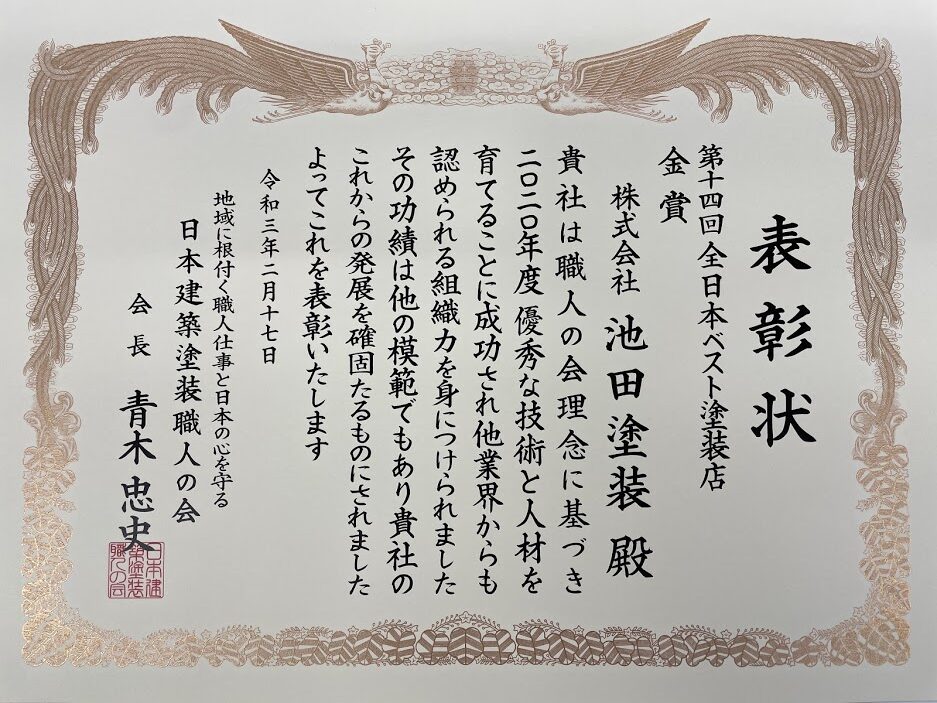 表彰状
第十四回 全日本ベスト塗装店
金賞
株式会社 池田塗装 殿
貴社は職人の会理念に基づき
二〇二〇年度優秀な技術と人材を
育てることに成功され他業界からも
認められる組織力を身につけられました
その功績は他の模範でもあり貴社の
これからの発展を確固たるものにされました
よってこれを表彰いたします
令和三年二月十七日
地域に根付く職人仕事と日本の心を守る
日本建築塗装職人の会
会長 青木忠史
日本建
築塗装
職人の会